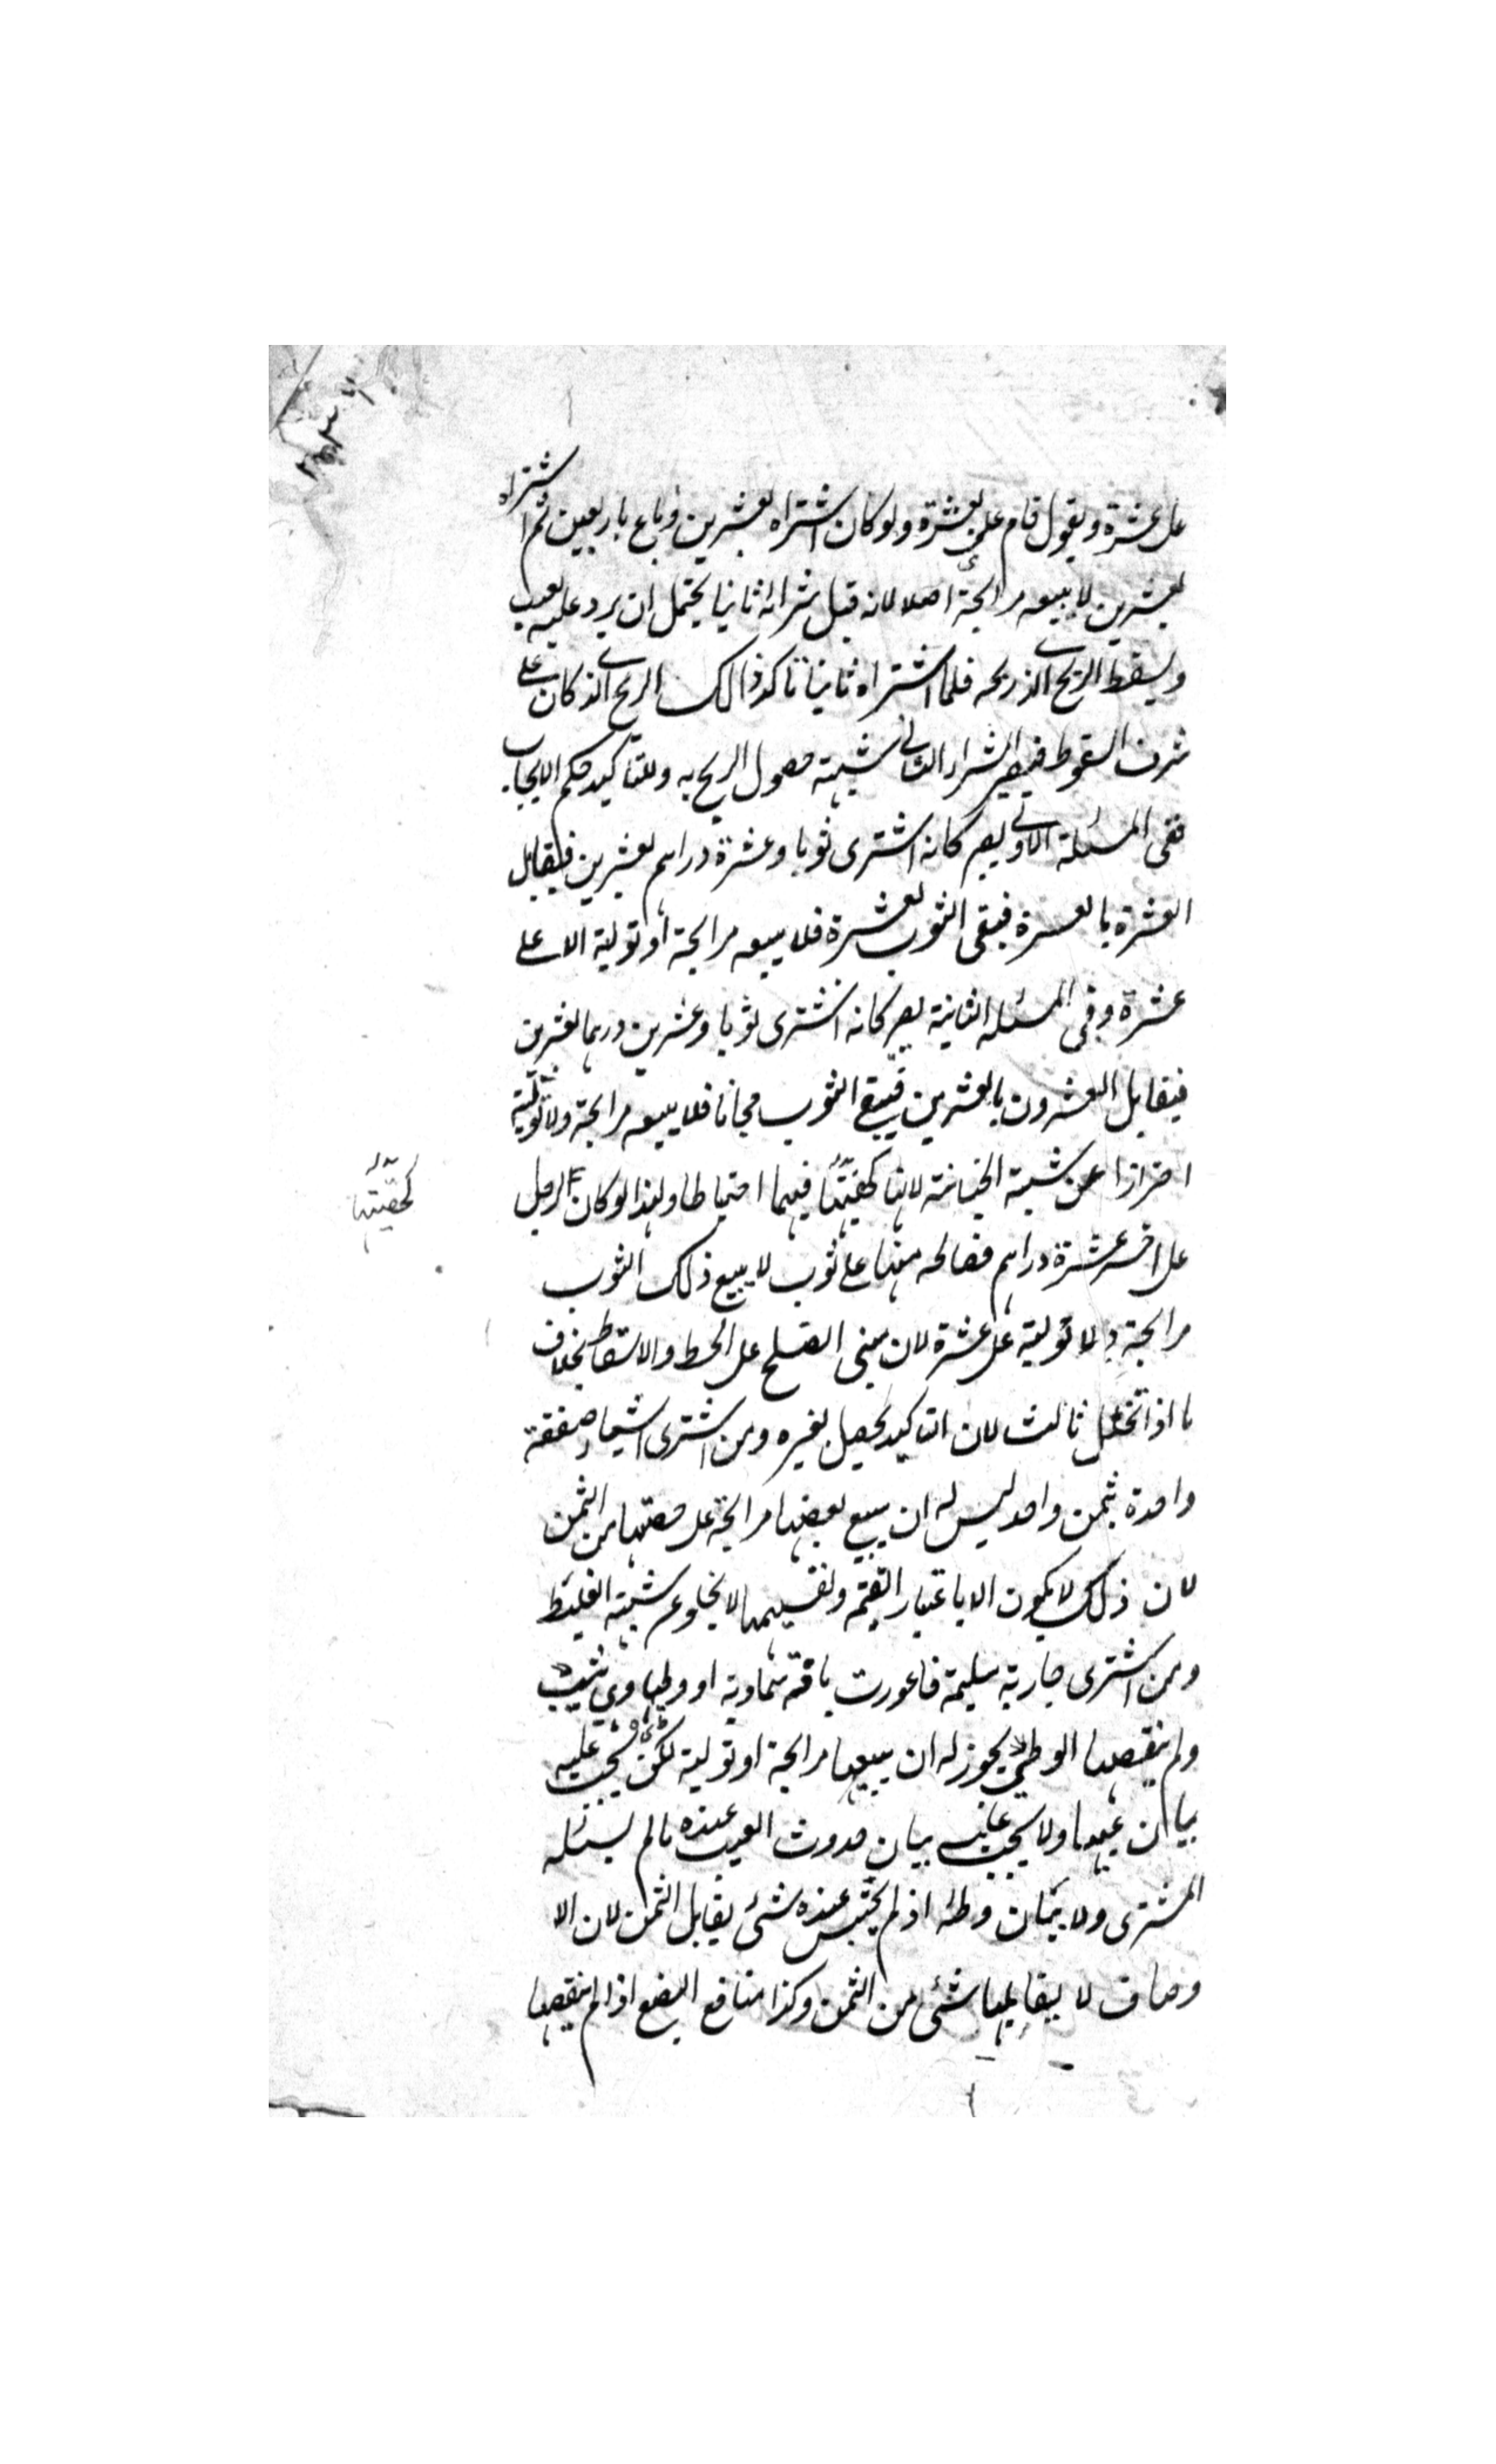 على عشرة ويقول قام على بعشرة ولو كان اشتراه بعشرين وباع باربعين ثم اشتراه
بعشرين لا يبيعه مرابحة اصلا لانه قبل شرائه ثانيا يحتمل ان يرد عليه بعيب
ويسقط الربح الذى ربحه فلما اشتراه ثانيا تاكد ذالك الربح الذى كان على
شرف السقوط فيصير الشراء الثانى شبهة حصول الربح به وللتاكيد حكم الايجاب
ففى المسئلة الاولى يصير كانه اشترى ثوبا وعشرة دراهم بعشرين فيقابل
العشرة بالعشرة فبقى الثوب بعشرة فلا يبيعه مرابحة او تولية الا على
عشرة وفى المسئلة الثانية يصير كانه اشترى ثوبا وعشرين درهما بعشرين
فيقابل العشرون بالعشرين فيبقى الثوب مجانا فلا يبيعه مرابحة ولا تولية
احترازا عن شبهة الخيانة لانها كحقيقتها فيهما احتياطا ولهذا لو كان لرجل
كحقيقتها
على اخر عشرة دراهم فصالحه منها على ثوب لا يبيع ذلك الثوب
مرابحة ولا تولية على عشرة لان مبنى الصلح على الحط والاسقاط بخلاف
ما اذا تخلل ثالث لان التاكيد يحصل بغيره ومن اشترى اشياء صفقة
واحدة بثمن واحد ليس له ان يبيع بعضها مرابحة على حصتها من الثمن
لان ذلك لا يكون الا باعتبار القيمة وتقسيمها لا يخلو عن شبهة الغلط
ومن اشترى جارية سليمة فاعورت بافة سماوية او وطيها وهى ثيب
ولم ينقصها الوطى يجوز له ان يبيعها مرابحة او تولية لكن يجب عليه
بيان عيبها ولا يجب عليه بيان حدوث العيب عنده ما لم يسئله
المشترى ولا بيان وطئه اذ لم يحتبس عنده شئ يقابل الثمن لان الا
وصاف لا يقابلها شئ من الثمن وكذا منافع البضع اذا لم ينقصها